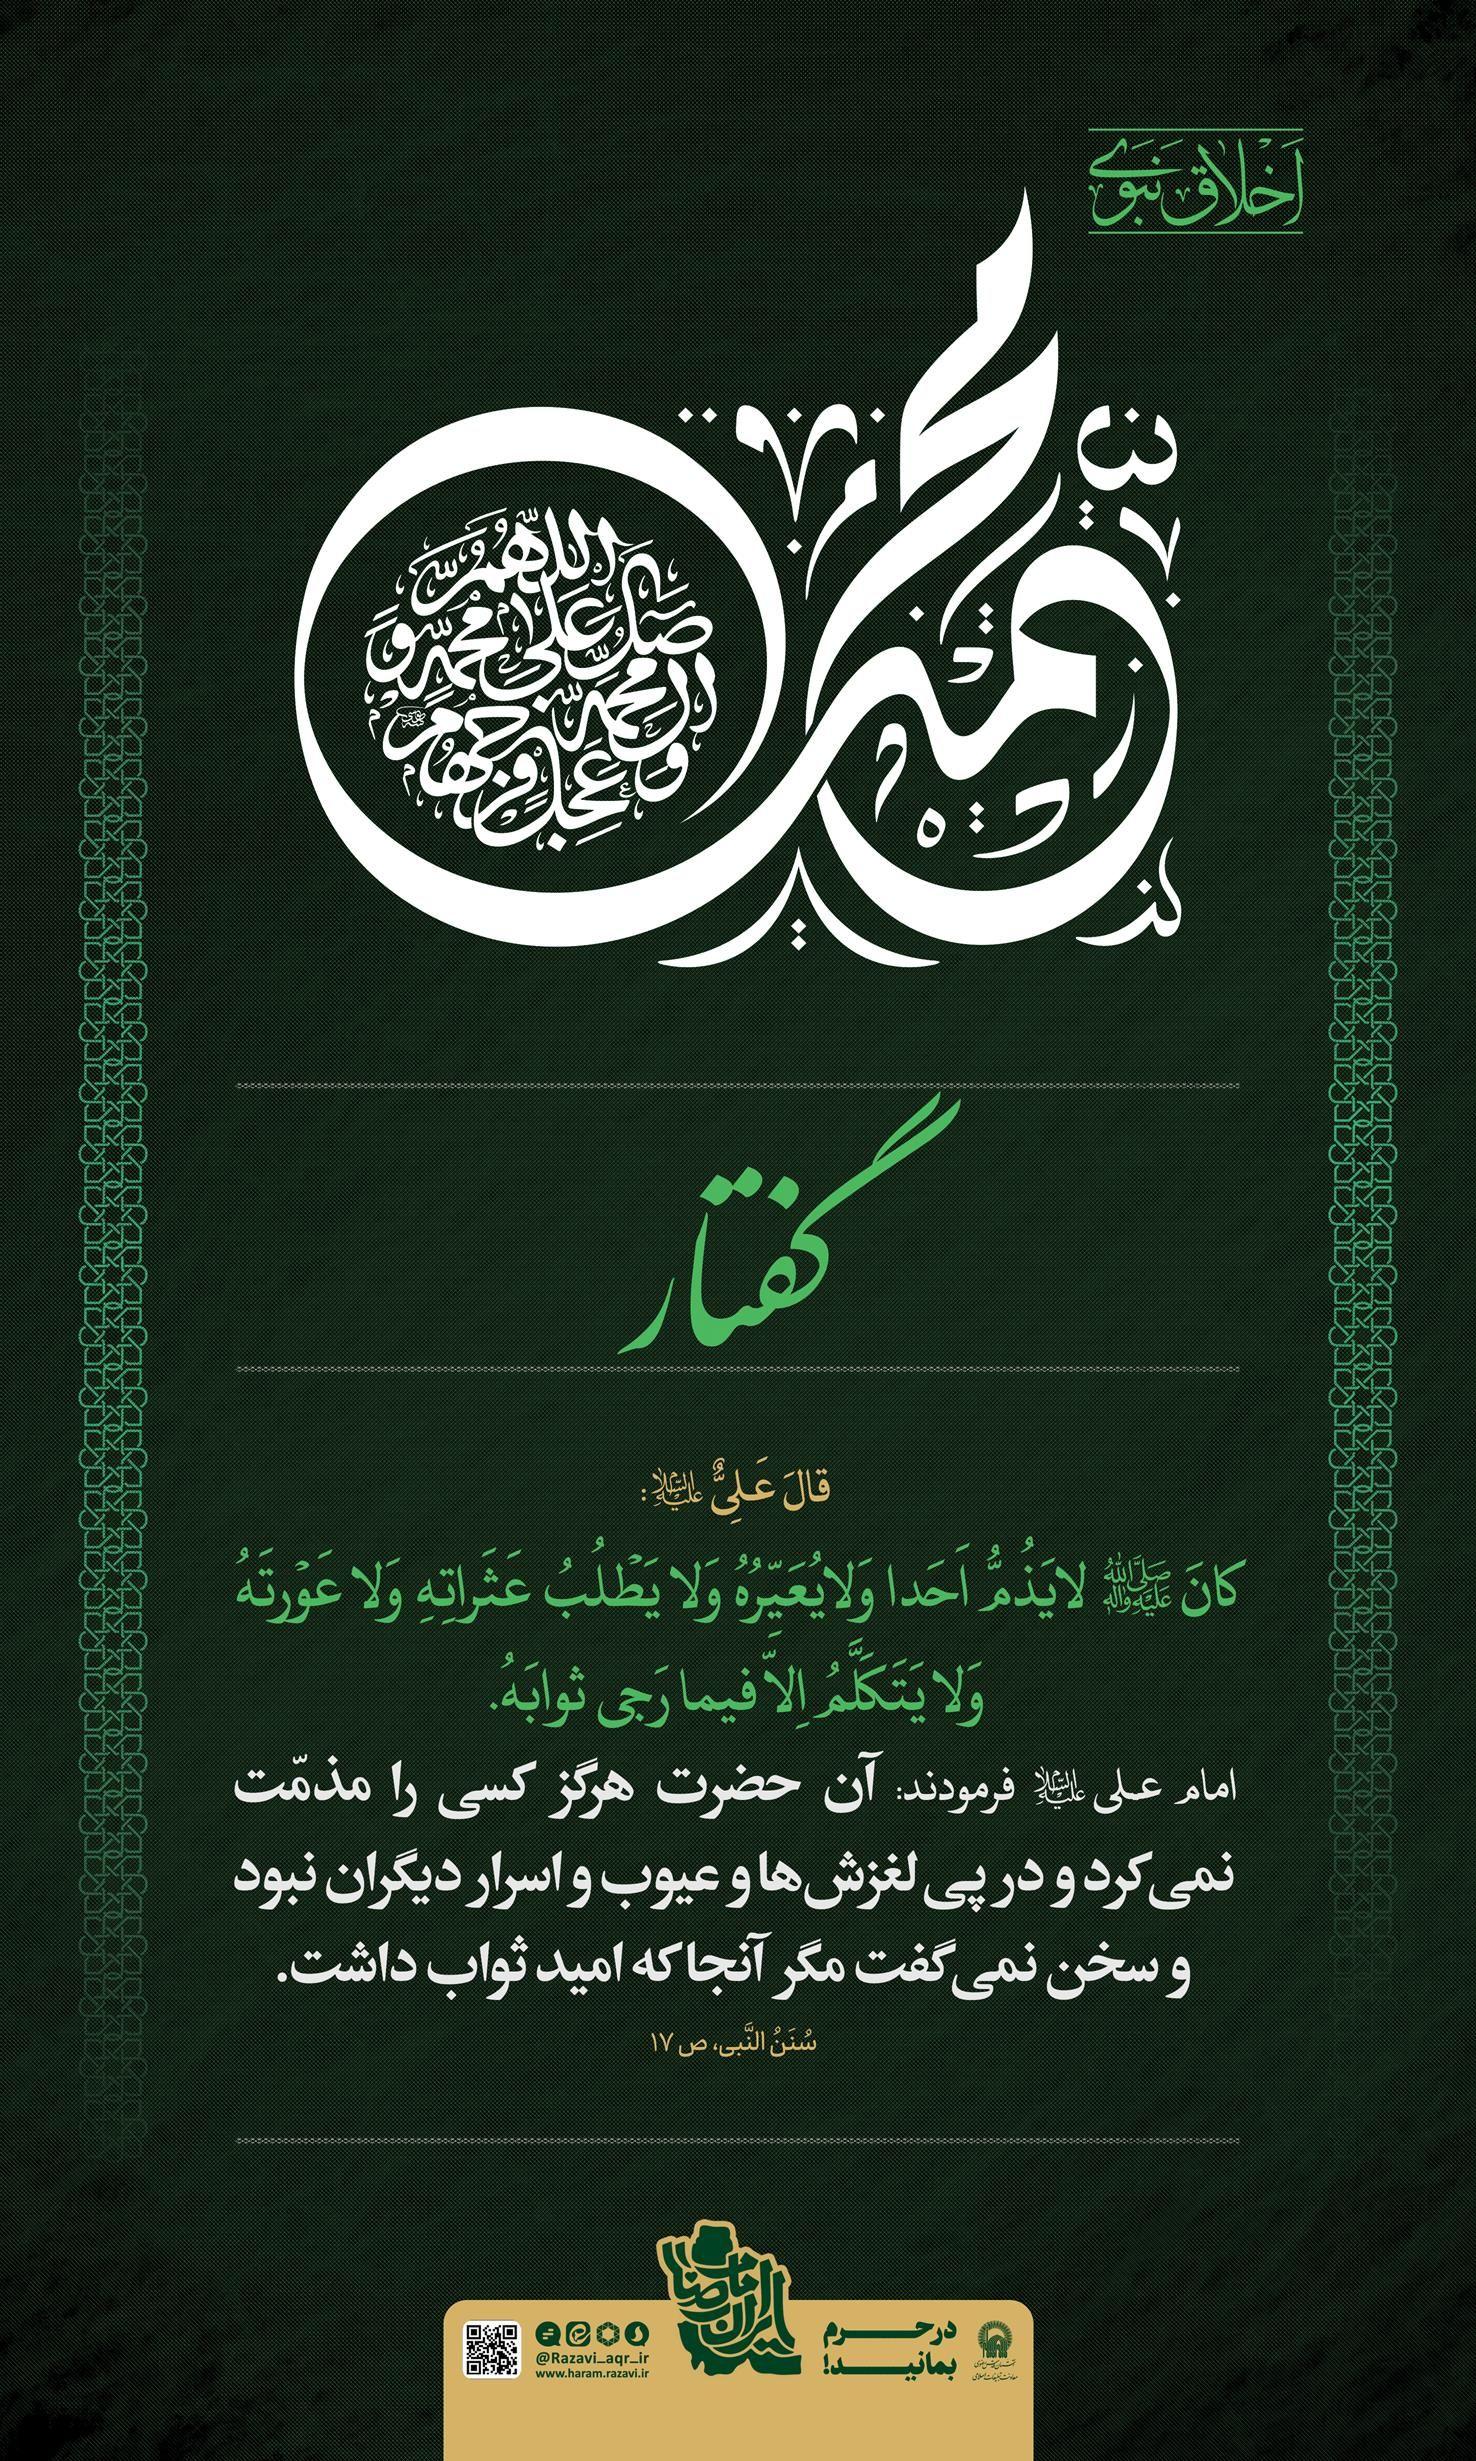 اَخلاق نبوی
محمد
اللّهُمَّ صَلِّ عَلی محمّد و آل محمّد و عَجِّل فَرَجَهُم
گفتار
قالَ عَلِیٌّ علیه‌السلام:
کانَ صلی الله علیه وآله لایَذُمُّ اَحَدا وَلایُعَیِّرُهُ وَلا یَطْلُبُ عَثَراتِهِ وَلا عَوْرَتَهُ
وَلا یَتَکَلَّمُ اِلاّ فیما رَجی ثوابَهُ.
امام علی علیه‌السلام فرمودند: آن حضرت هرگز کسی را مذمّت
نمی‌کرد و در پی لغزش‌ها و عیوب و اسرار دیگران نبود
و سخن نمی‌گفت مگر آنجا که امید ثواب داشت.
سُنَنُ النَّبی، ص ۱۷
در حرم
بمانید!
ایران امام رضا
@Razavi_aqr_ir
www.haram.razavi.ir